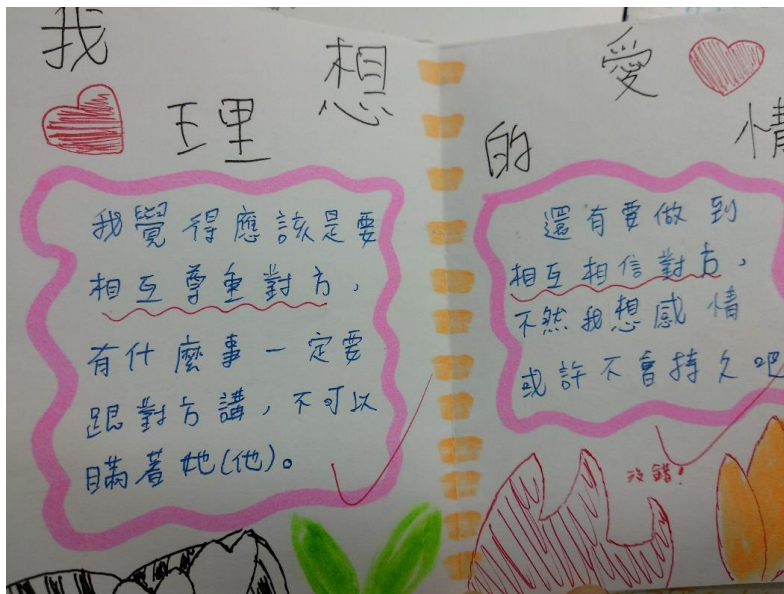 我理想的愛情
我覺得應該是要
相互尊重對方，
有什麼事一定要
跟對方講，不可以
瞞著她(他)。
還有要做到
相互相信對方，
不然我想感情
或許不會持久吧
沒錯！